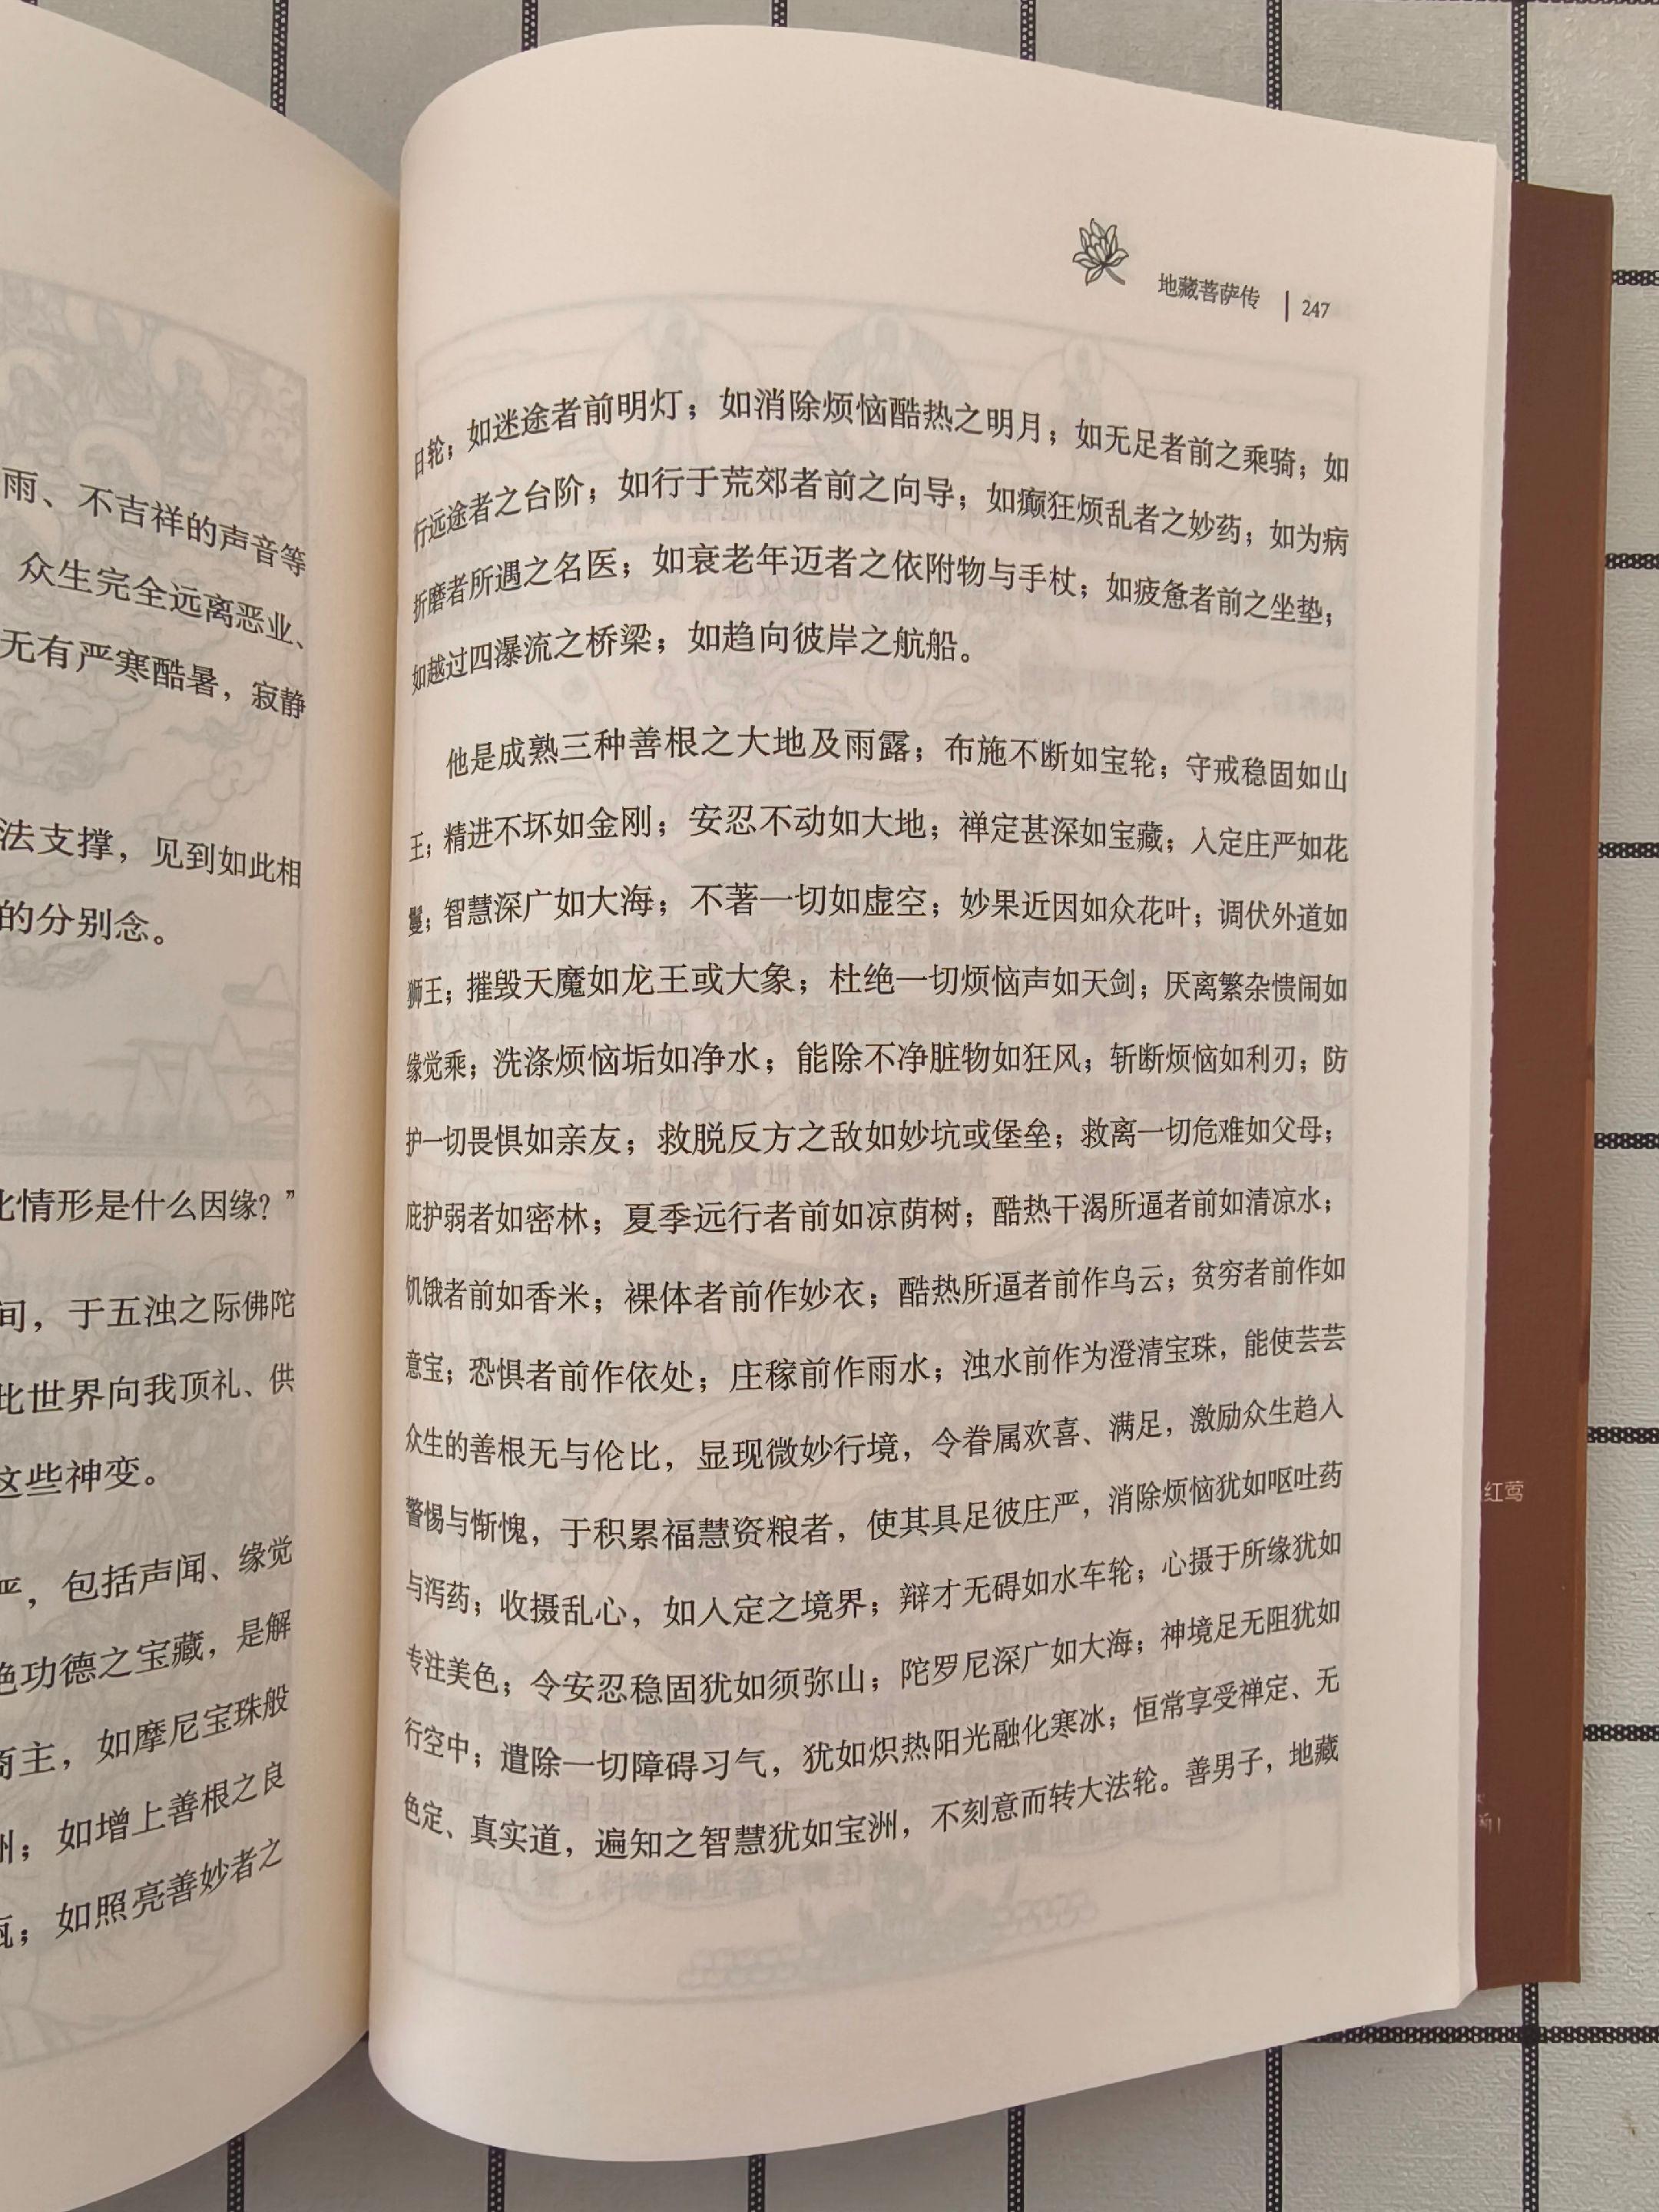 雨、不吉祥的声音等
众生完全远离恶业、
无有严寒酷暑，寂静
法支撑，见到如此相
的分别念。
比情形是什么因缘？”
间，于五浊之际佛陀
此世界向我顶礼、供
这些神变。
严，包括声闻、缘觉
绝功德之宝藏，是解
商主，如摩尼宝珠般
州；如增上善根之良
瓶；如照亮善妙者之
地藏菩萨传 | 247
日轮；如迷途者前明灯；如消除烦恼酷热之明月；如无足者前之乘骑；如
行远途者之台阶；如行于荒郊者前之向导；如癫狂烦乱者之妙药；如为病
折磨者所遇之名医；如衰老年迈者之依附物与手杖；如疲惫者前之坐垫；
如越过四瀑流之桥梁；如趋向彼岸之航船。
他是成熟三种善根之大地及雨露；布施不断如宝轮；守戒稳固如山
王；精进不坏如金刚；安忍不动如大地；禅定甚深如宝藏；入定庄严如花
鬘；智慧深广如大海；不著一切如虚空；妙果近因如众花叶；调伏外道如
狮王；摧毁天魔如龙王或大象；杜绝一切烦恼声如天剑；厌离繁杂愦闹如
缘觉乘；洗涤烦恼垢如净水；能除不净脏物如狂风；斩断烦恼如利刃；防
护一切畏惧如亲友；救脱反方之敌如妙坑或堡垒；救离一切危难如父母；
庇护弱者如密林；夏季远行者前如凉荫树；酷热干渴所逼者前如清凉水；
饥饿者前如香米；裸体者前作妙衣；酷热所逼者前作乌云；贫穷者前作如
意宝；恐惧者前作依处；庄稼前作雨水；浊水前作为澄清宝珠，能使芸芸
众生的善根无与伦比，显现微妙行境，令眷属欢喜、满足，激励众生趋入
警惕与惭愧，于积累福慧资粮者，使其具足彼庄严，消除烦恼犹如呕吐药
与泻药；收摄乱心，如入定之境界；辩才无碍如水车轮；心摄于所缘犹如
专注美色；令安忍稳固犹如须弥山；陀罗尼深广如大海；神境足无阻犹如
行空中；遣除一切障碍习气，犹如炽热阳光融化寒冰；恒常享受禅定、无
色定、真实道，遍知之智慧犹如宝洲，不刻意而转大法轮。善男子，地藏
红莺